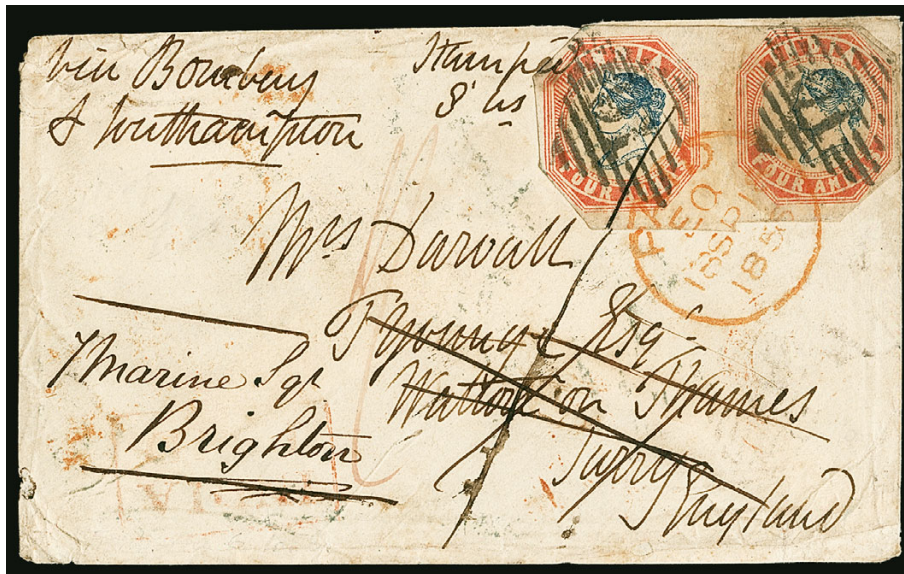 via Bombay
& Southampton
Stamped
8 as
FOUR ANNAS
FOUR ANNAS
PAID
EQ
18 SP 18
1856
Mrs Darvall
Esq
Walton on Thames
Surry
England
7 Marine Sqr
Brighton